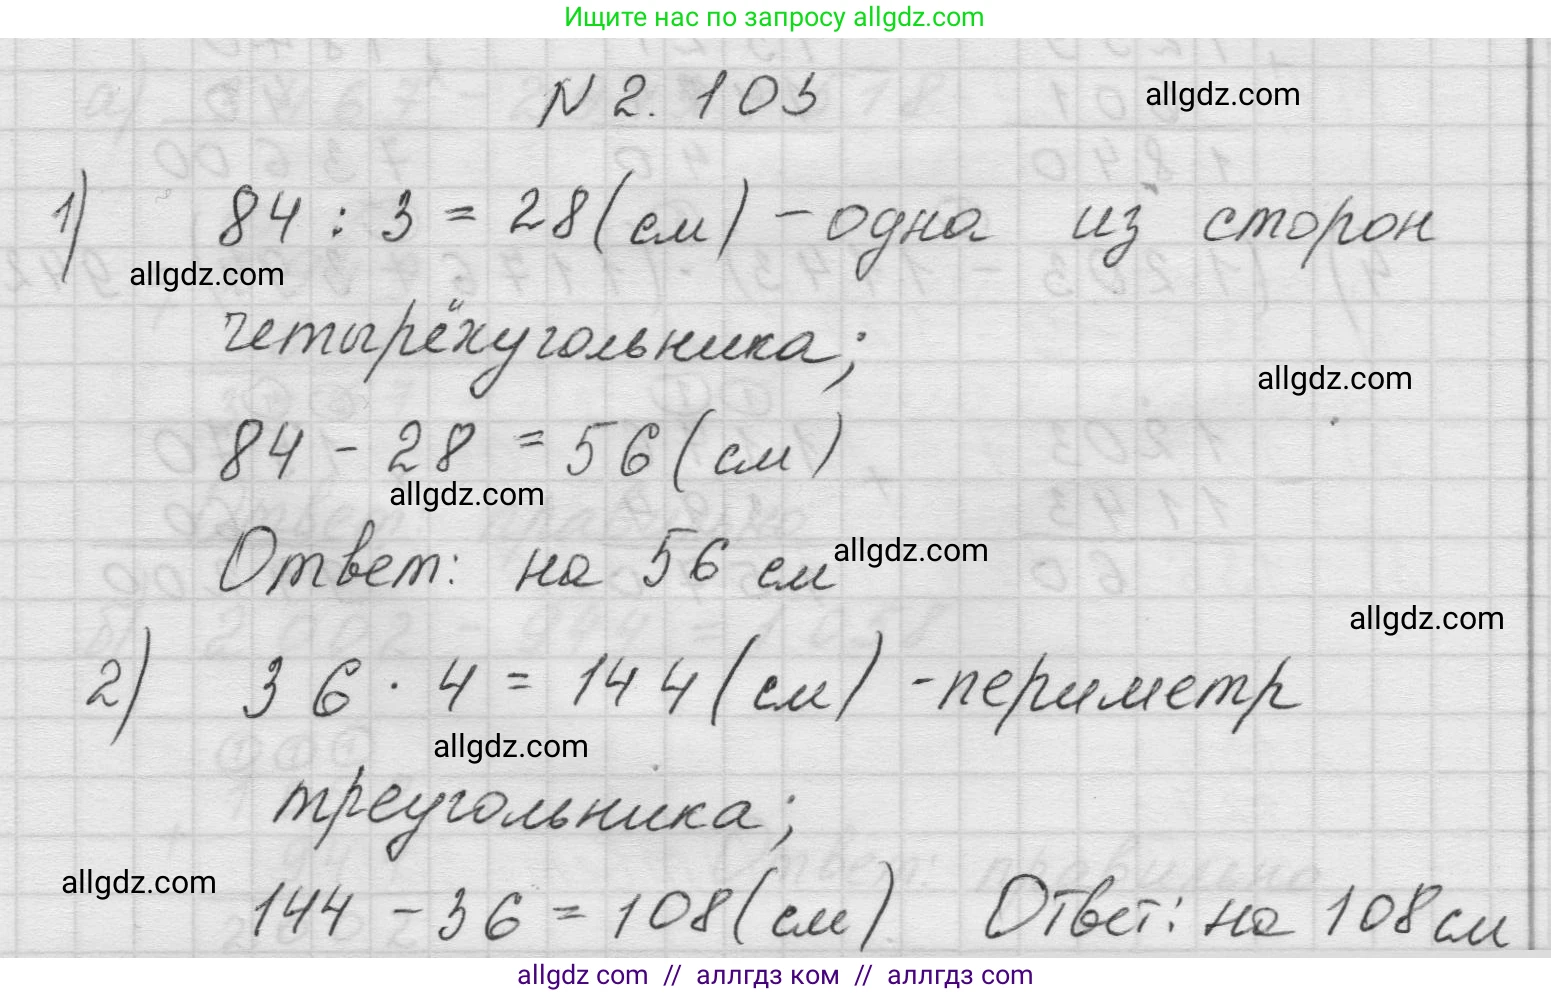 Ищите нас по запросу allgdz.com
N 2. 103
allgdz.com
1) 84 : 3 = 28 (см) - одна из сторон
allgdz.com
четырёхугольника;
allgdz.com
84 - 28 = 56 (см)
allgdz.com
Ответ: на 56 см
allgdz.com
allgdz.com
2) 36 · 4 = 144 (см) - периметр
allgdz.com
треугольника;
allgdz.com
144 - 36 = 108 (см) Ответ: на 108 см
allgdz com // аллгдз ком // аллгдз com